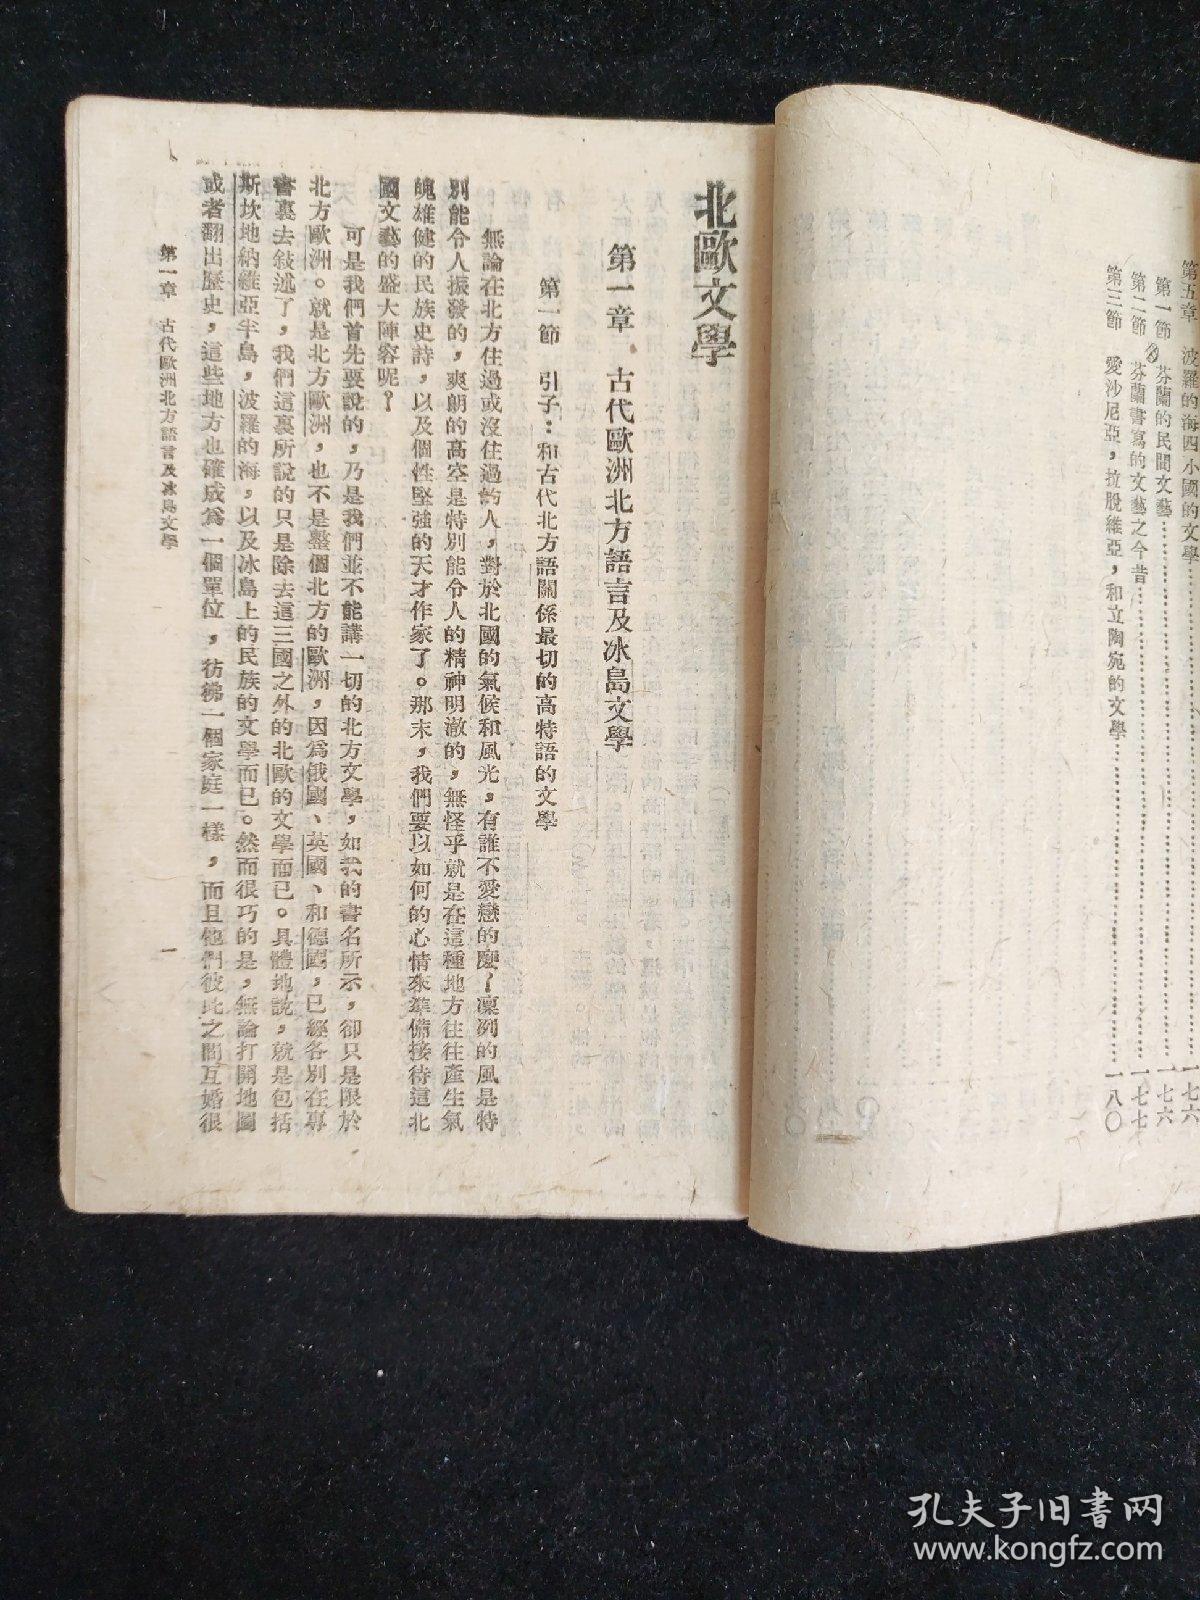 第五章　波羅的海四小國的文學……一七六
第一節　芬蘭的民間文藝……一七六
第二節　芬蘭書寫的文藝之今昔……一七七
第三節　愛沙尼亞，拉脫維亞，和立陶宛的文學……一八〇
北歐文學
第一章　古代歐洲北方語言及冰島文學
第一節　引子：和古代北方語關係最切的高特語的文學
無論在北方住過或沒住過的人，對於北國的氣候和風光，有誰不愛戀的麼？凜冽的風是特
別能令人振發的，爽朗的高空是特別能令人的精神明澈的，無怪乎就是在這種地方往往產生氣
魄雄健的民族史詩，以及個性堅強的天才作家了。那末，我們要以如何的心情來準備接待這北
國文藝的盛大陣容呢？
可是我們首先要說的，乃是我們並不能講一切的北方文學，如我的書名所示，卻只是限於
北方歐洲。就是北方歐洲，也不是整個北方的歐洲，因為俄國、英國、和德國，已經各別在專
書裏去敍述了，我們這裏所說的只是除去這三國之外的北歐的文學而已。具體地說，就是包括
斯坎地納維亞半島，波羅的海，以及冰島上的民族的文學而已。然而很巧的是，無論打開地圖
或者翻出歷史，這些地方也確成為一個單位，彷彿一個家庭一樣，而且他們彼此之間互婚很
第一章　古代歐洲北方語言及冰島文學
一
孔夫子旧书网
www.kongfz.com